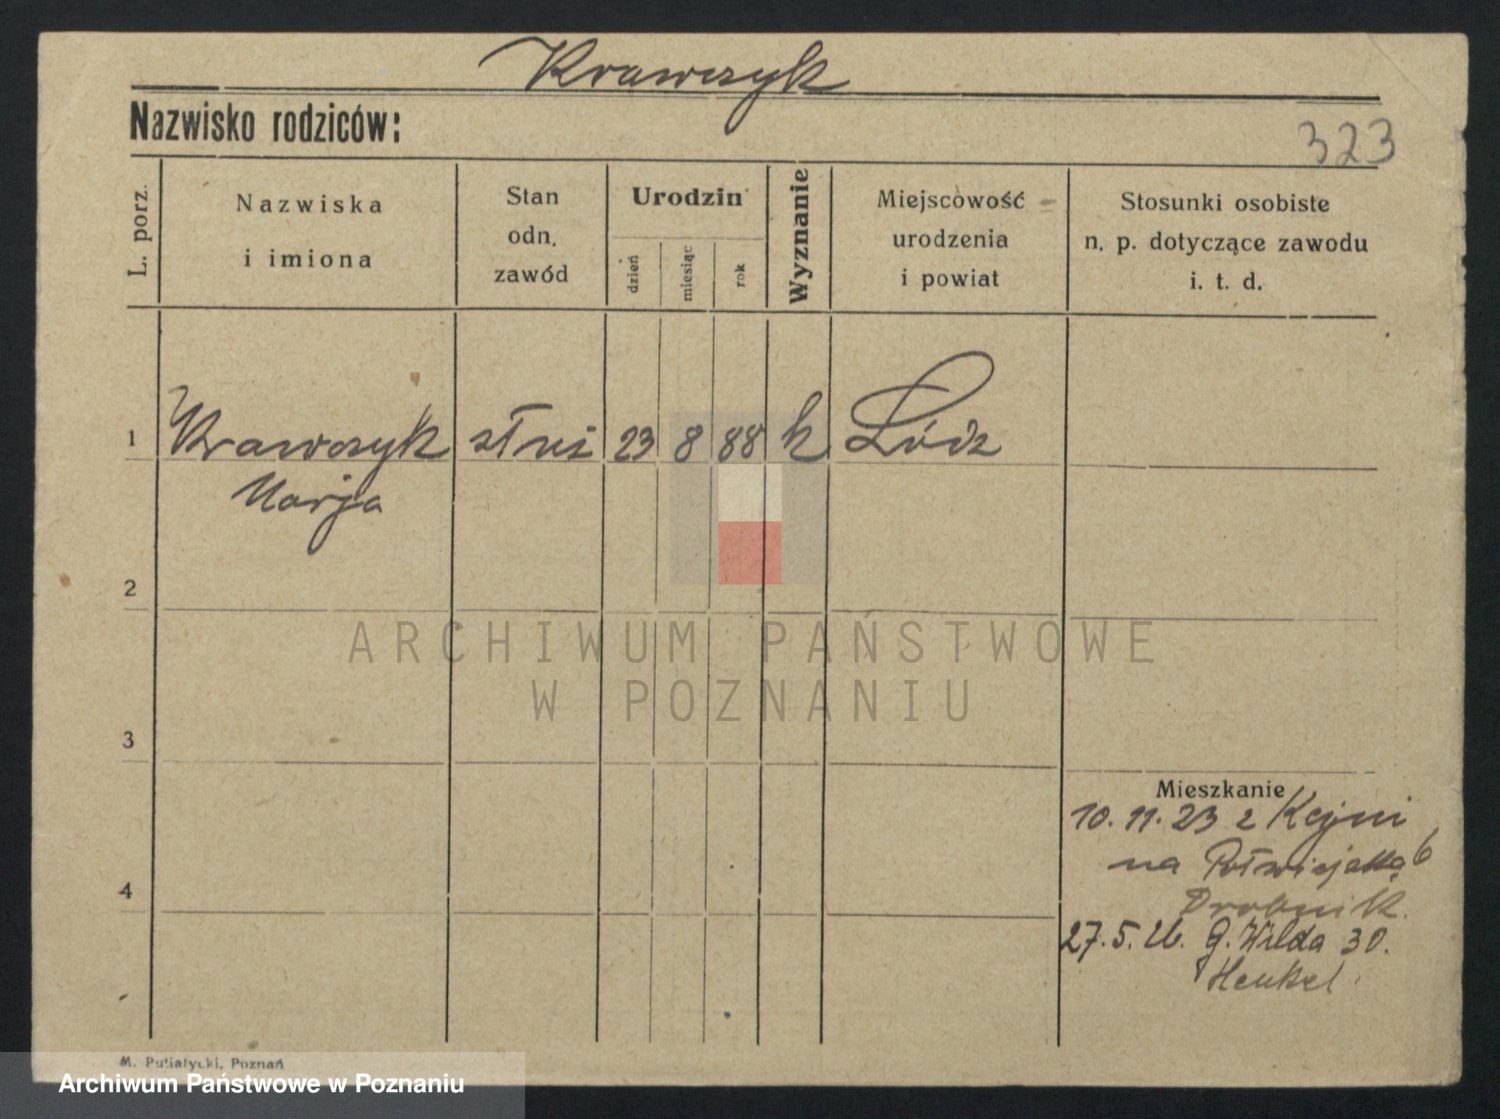 Krawczyk
Nazwisko rodziców:
323
L. porz.
Nazwiska
i imiona
Stan
odn.
zawód
Urodzin
dzień
miesiąc
rok
Wyznanie
Miejscowość
urodzenia
i powiat
Stosunki osobiste
n. p. dotyczące zawodu
i. t. d.
1 Krawczyk służ 23 8 88 k Łódz
Marja
2
ARCHIWUM PAŃSTWOWE
W POZNANIU
3
Mieszkanie
10.11.23 z Kcyni
na Półwiejską 6
Drobnik.
4
27.5.26. G. Wilda 30.
Henkel
M. Putiatycki, Poznań
Archiwum Państwowe w Poznaniu